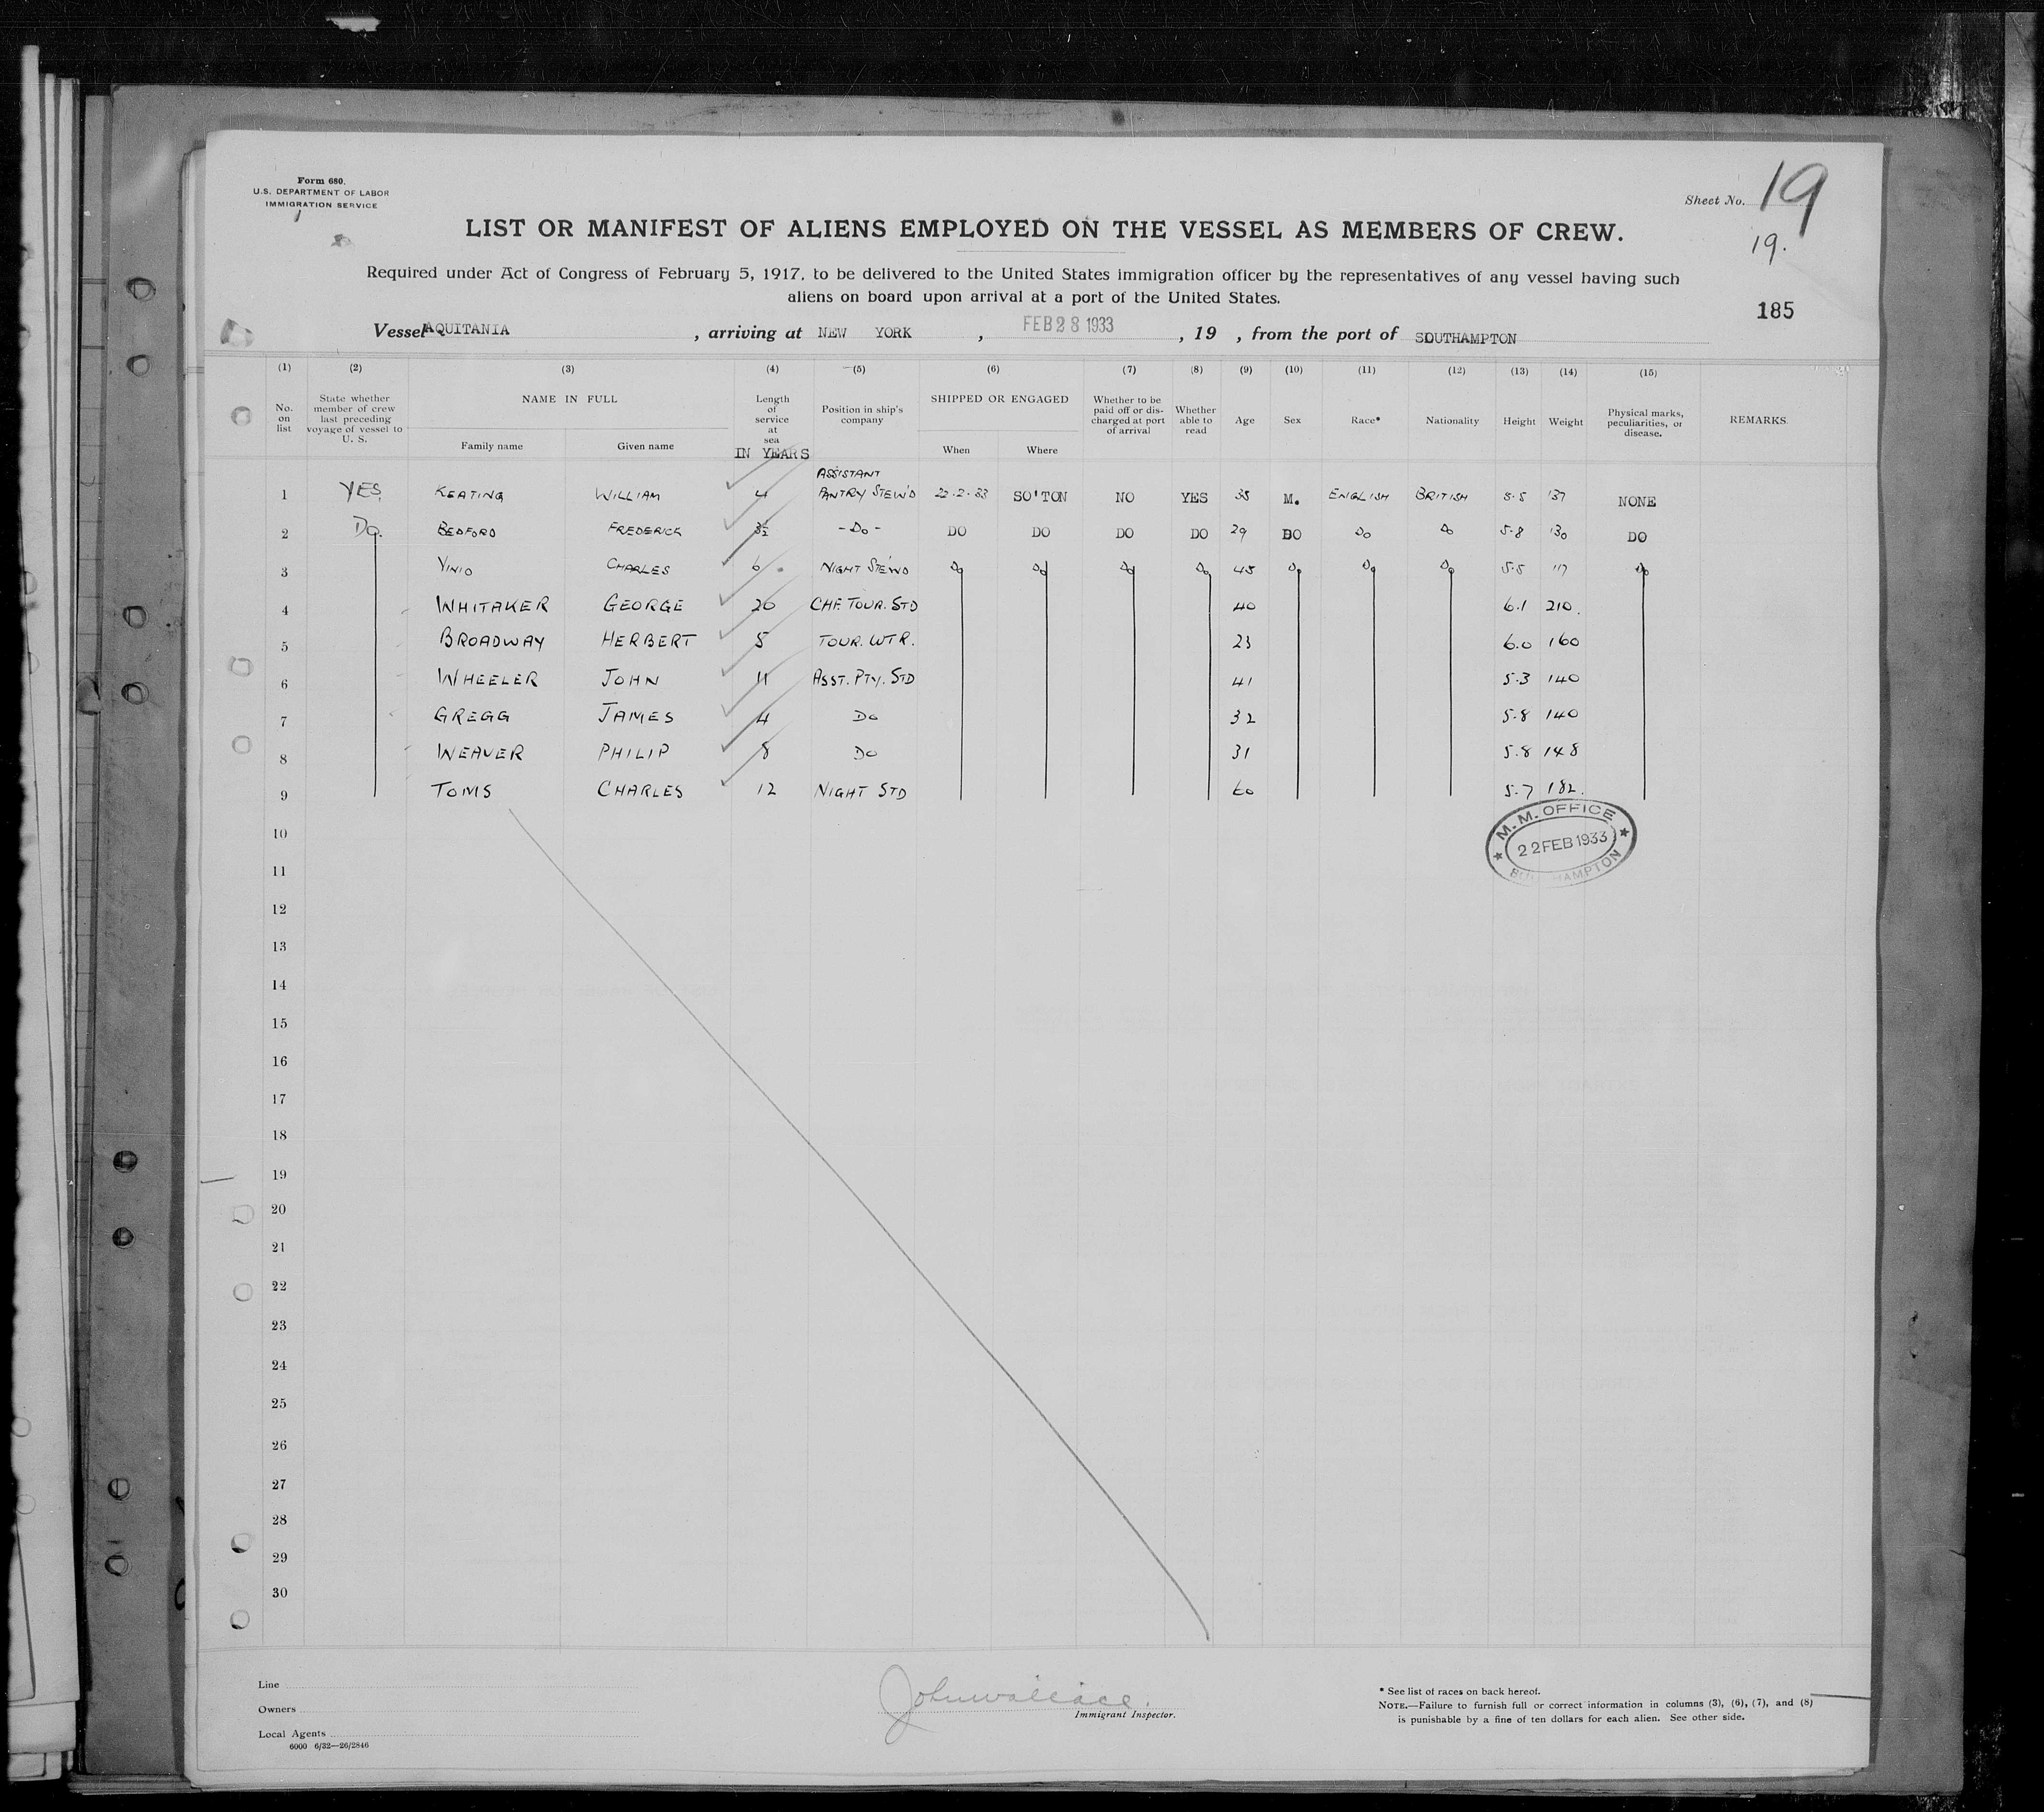 Form 680.
U.S. DEPARTMENT OF LABOR
IMMIGRATION SERVICE
Sheet No. 19
19.
LIST OR MANIFEST OF ALIENS EMPLOYED ON THE VESSEL AS MEMBERS OF CREW.
Required under Act of Congress of February 5, 1917, to be delivered to the United States immigration officer by the representatives of any vessel having such
aliens on board upon arrival at a port of the United States.
185
Vessel AQUITANIA , arriving at NEW YORK , FEB 28 1933 , 19 , from the port of SOUTHAMPTON
(1) (2) (3) (4) (5) (6) (7) (8) (9) (10) (11) (12) (13) (14) (15)
No. on list
State whether member of crew last preceding voyage of vessel to U. S.
NAME IN FULL
Family name Given name
Length of service at sea
IN YEARS
Position in ship's company
SHIPPED OR ENGAGED
When Where
Whether to be paid off or discharged at port of arrival
Whether able to read
Age
Sex
Race*
Nationality
Height
Weight
Physical marks, peculiarities, or disease.
REMARKS
ASSISTANT
1 YES KEATING WILLIAM 4 PANTRY STEW'D 22-2-33 SO'TON NO YES 35 M. ENGLISH BRITISH 5.5 137 NONE
2 Do. BEDFORD FREDERICK 3½ -Do- DO DO DO DO 29 DO Do Do 5.8 130 DO
3 CHARLES 6 NIGHT STEWD Do Do Do Do 45 Do Do Do 5.5 117 Do
4 WHITAKER GEORGE 20 CHF. TOUR. STD 40 6.1 210.
5 BROADWAY HERBERT 5 TOUR. WTR. 23 6.0 160
6 WHEELER JOHN 11 ASST. PTY. STD 41 5.3 140
7 GREGG JAMES 4 Do 32 5.8 140
8 WEAVER PHILIP 8 Do 31 5.8 148
9 TOMS CHARLES 12 NIGHT STD 60 5.7 182.
M.M. OFFICE
22 FEB 1933
10
11
12
13
14
15
16
17
18
19
20
21
22
23
24
25
26
27
28
29
30
Line
Owners
Local Agents
6000 6/32—26/2846
John Wallace.
Immigrant Inspector.
* See list of races on back hereof.
NOTE.—Failure to furnish full or correct information in columns (3), (6), (7), and (8)
is punishable by a fine of ten dollars for each alien. See other side.